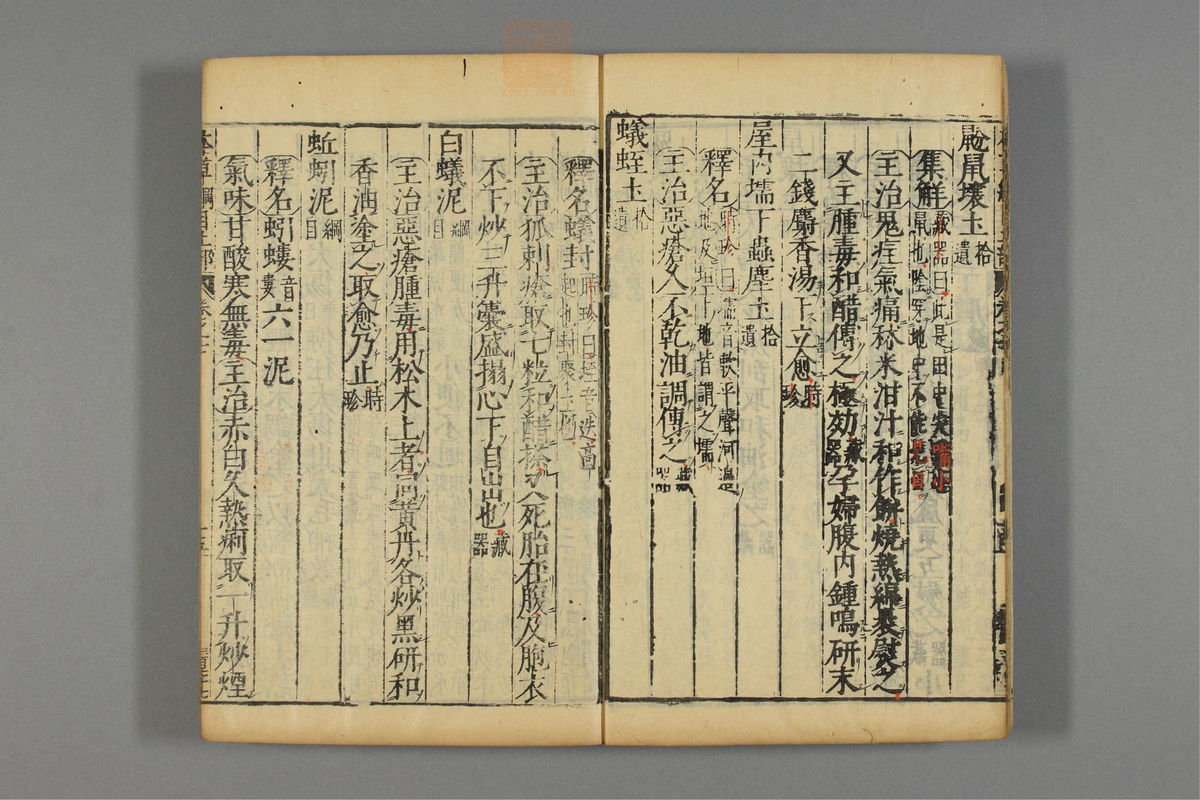 鼢鼠壤土拾遺
集解藏器曰此是田中尖嘴小鼠也陰穿地中不能見日
主治鬼疰氣痛秫米泔汁和作餅燒熱綿裹熨之
又主腫毒和醋傅之極効藏器孕婦腹內鍾鳴研末
二錢麝香湯下立愈時珍
屋內壖下蟲塵土拾遺
釋名時珍曰壖音軟平聲河邊地及垣下地皆謂之壖
主治惡瘡久不乾油調傅之藏器
蟻蛭土拾遺
釋名蟻封時珍曰垤音迭高起也封聚土也
主治狐刺瘡取七粒和醋搽又死胎在腹及胞衣
不下炒三升囊盛搨心下自出也藏器
白蟻泥綱目
主治惡瘡腫毒用松木上者同黃丹各炒黑研和
香油塗之取愈乃止時珍
蚯蚓泥綱目
釋名蚓螻音婁六一泥
氣味甘酸寒無毒主治赤白久熱痢取一升炒煙
本草綱目土部 卷之七